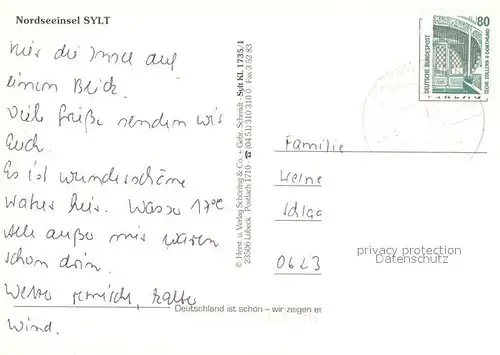 Nordseeinsel SYLT
Hier die Insel auf
einem Blick.
Viele Grüße senden wir
Euch.
Es ist wunderschöne
hier. Wasser 17°C
Alle außer mir waren
schon drin.
Wetter kalter
Wind.
© Herst. u. Verlag Schöning & Co. + Gebr. Schmidt
23506 Lübeck Postfach 1710 ☎ (04 51) 310 310 Fax 3 52 83
Sylt Kl. 1735/1
80
DEUTSCHE BUNDESPOST
ZECHE ZOLLERN II DORTMUND
Familie
Werne
0623
privacy protection
Datenschutz
Deutschland ist schön – wir zeigen es